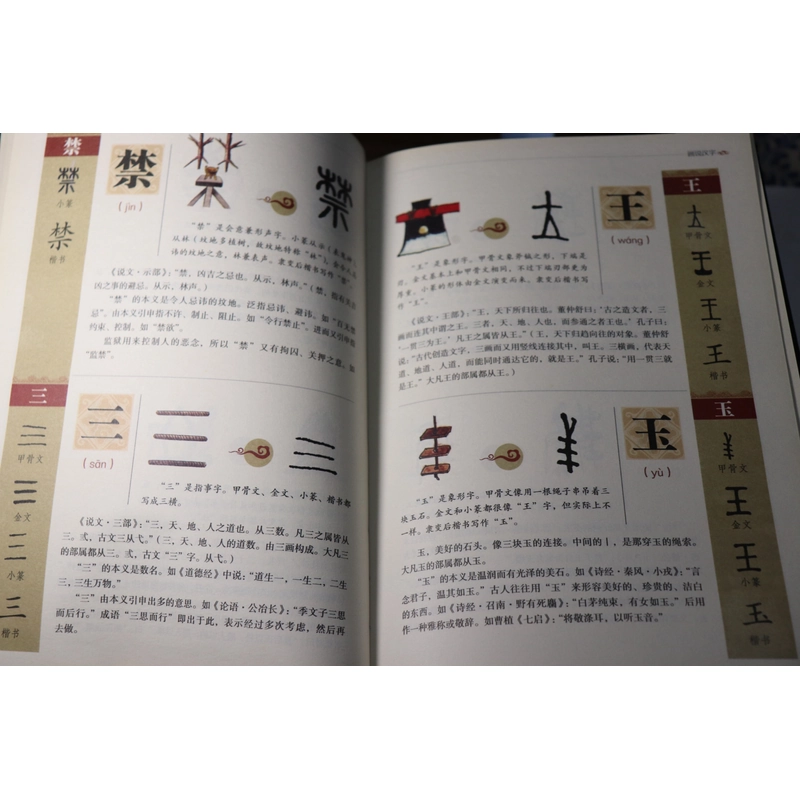 禁
小篆
楷书
禁
(jìn)
禁
"禁"是会意兼形声字。小篆从示
从林(坟地多植树，故坟地特称"林")
讳的坟地之意，林兼表声。隶变后楷书写作"禁"。
《说文·示部》："禁，凶吉之忌也。从示，林声。"(禁，
凶之事的避忌。从示，林声。)
"禁"的本义是令人忌讳的坟地。泛指忌讳、避讳。如
忌"。由本义引申指不许、制止、阻止。如"令行禁止"。进而又引申指
约束、控制。如"禁欲"。
监狱用来控制人的恶念，所以"禁"又有拘囚、关押之意。如
"监禁"。
三
甲骨文
金文
小篆
楷书
三
(sān)
"三"是指事字。甲骨文、金文、小篆、楷书都
写成三横。
《说文·三部》："三，天、地、人之道也。从三数。凡三之属皆从
三。弎，古文三从弋。"(三，天、地、人的道数。由三画构成。大凡三
的部属都从三。弎，古文"三"字。从弋。)
"三"的本义是数名。如《道德经》中说："道生一，一生二，二生
三，三生万物。"
"三"由本义引申出多的意思。如《论语·公冶长》："季文子三思
而后行。"成语"三思而行"即出于此，表示经过多次考虑，然后再
去做。
画说汉字
王
(wáng)
王
甲骨文
金文
小篆
楷书
"王"是象形字。甲骨文象斧钺之形，下端是
刃。金文基本上和甲骨文相同，不过下端刃部更为
厚重。小篆的形体由金文演变而来。隶变后楷书写
作"王"。
《说文·王部》："王，天下所归往也。董仲舒曰：'古之造文者，三
画而连其中谓之王。三者，天、地、人也，而参通之者王也。'孔子曰：
'一贯三为王。'凡王之属皆从王。"(王，天下归趋向往的对象。董仲舒
说："古代创造文字，三画而又用竖线连接其中，叫王。三横画，代表天
道、地道、人道，而能同时通达它的，就是王。"孔子说："用一贯三就
是王。"大凡王的部属都从王。)
玉
(yù)
玉
甲骨文
金文
小篆
楷书
"玉"是象形字。甲骨文像用一根绳子串吊着三
块玉石。金文和小篆都很像"王"字，但实际上不
一样。隶变后楷书写作"玉"。
玉，美好的石头。像三块玉的连接。中间的丨，是那穿玉的绳索。
大凡玉的部属都从玉。
"玉"的本义是温润而有光泽的美石。如《诗经·秦风·小戎》："言
念君子，温其如玉。"古人往往用"玉"来形容美好的、珍贵的、洁白
的东西。如《诗经·召南·野有死麕》："白茅纯束，有女如玉。"后用
作一种雅称或敬辞。如曹植《七启》："将敬涤耳，以听玉音。"